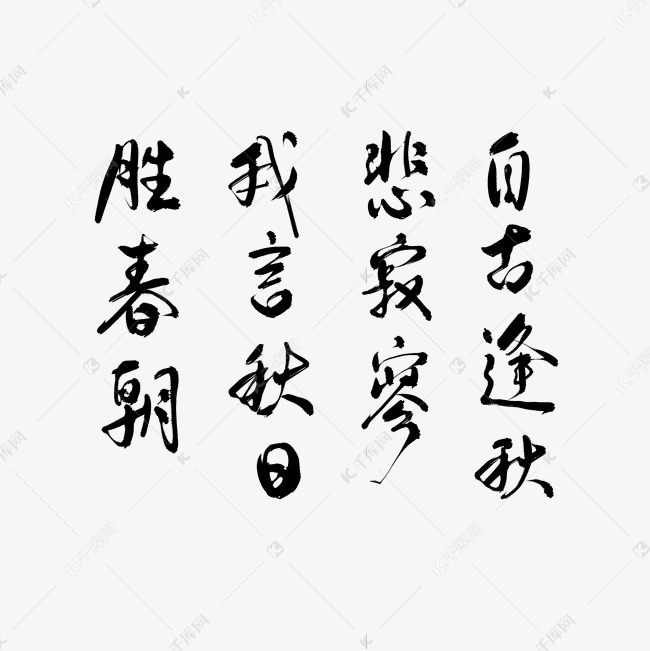 自古逢秋
悲寂寥
我言秋日
胜春朝